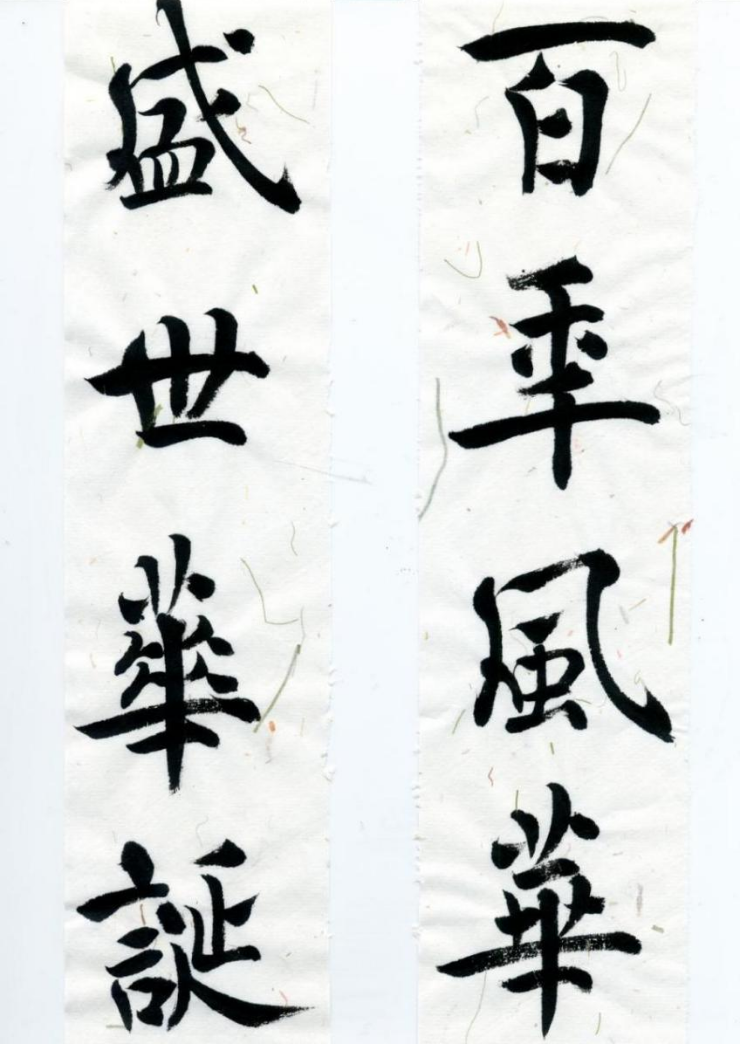 百年風華
盛世華誕